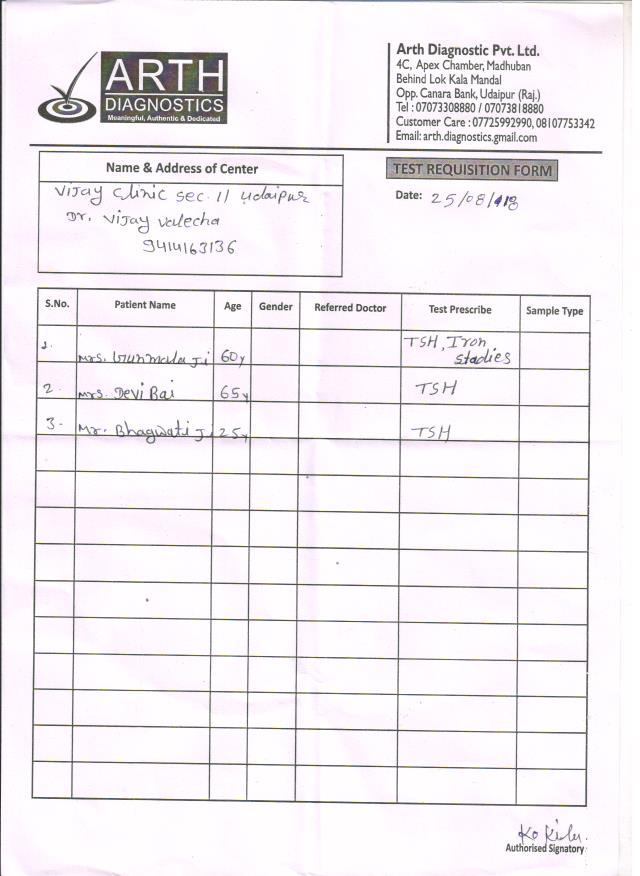 ARTH
DIAGNOSTICS
Meaningful, Authentic & Dedicated
Arth Diagnostic Pvt. Ltd.
4C, Apex Chamber, Madhuban
Behind Lok Kala Mandal
Opp. Canara Bank, Udaipur (Raj.)
Tel : 07073308880 / 07073818880
Customer Care : 07725992990, 08107753342
Email: arth.diagnostics.gmail.com
Name & Address of Center
Vijay Clinic Sec. 11 Udaipur
Dr. Vijay Valecha
9414163136
TEST REQUISITION FORM
Date: 25/08/18
S.No. Patient Name Age Gender Referred Doctor Test Prescribe Sample Type
1. Mrs. Ji 60y TSH, Iron Stadies
2. Mrs. Devi Bai 65y TSH
3- Mr. Bhagwati J. 25y TSH
Authorised Signatory